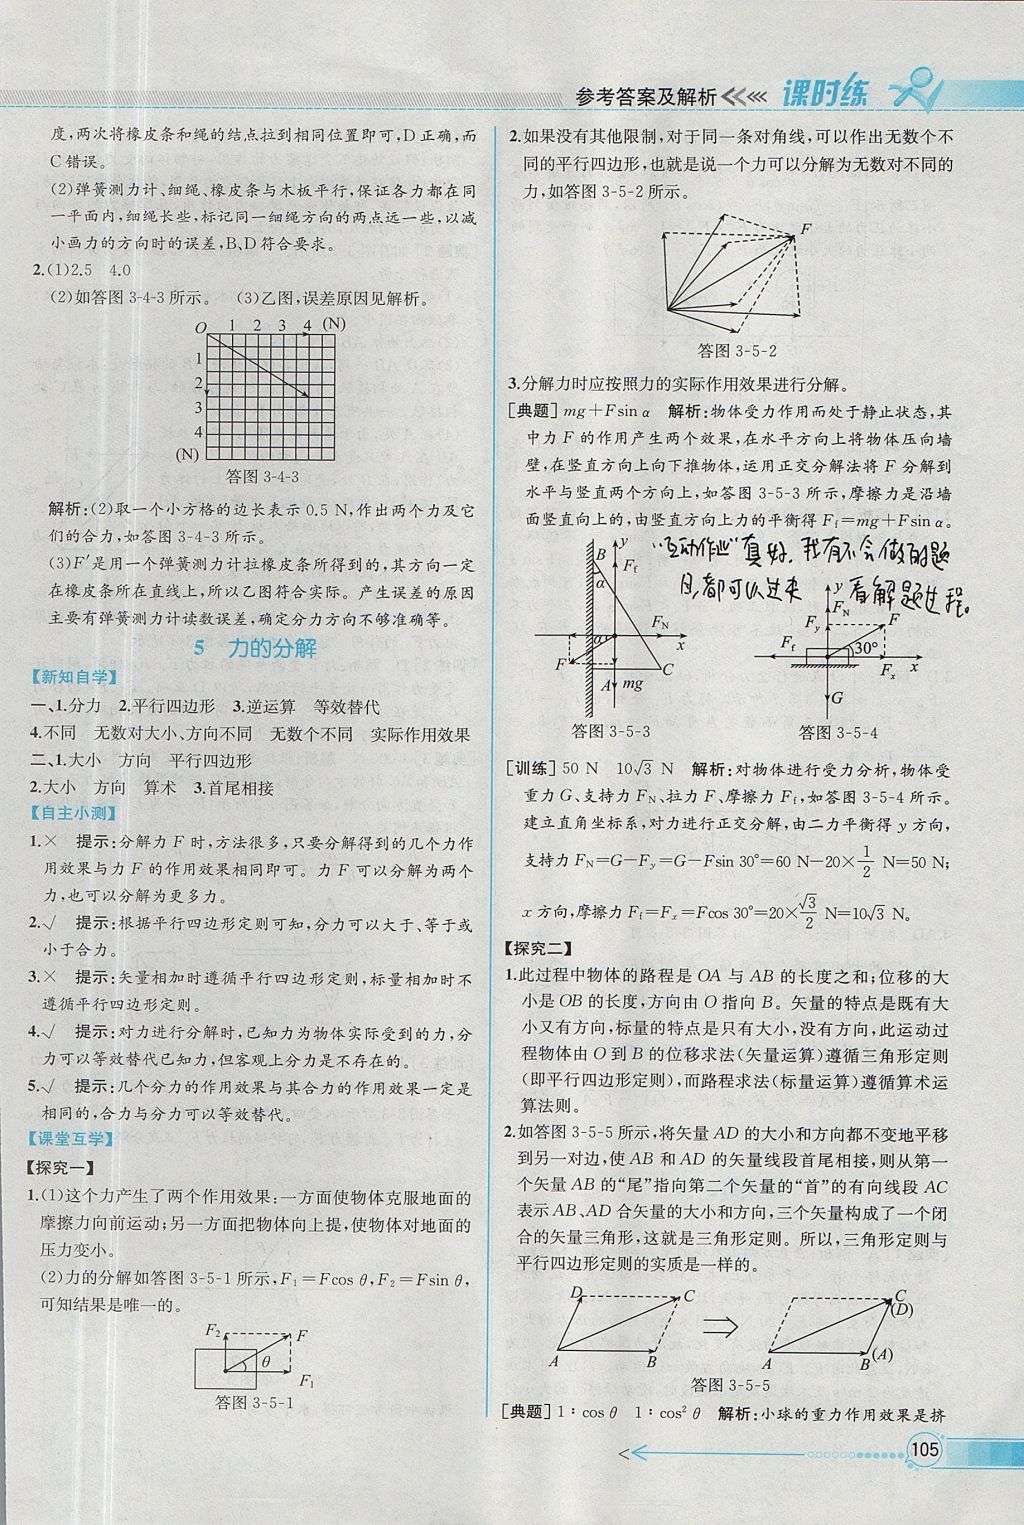 参考答案及解析 课时练
度,两次将橡皮条和绳的结点拉到相同位置即可,D正确,而
C错误。
(2)弹簧测力计、细绳、橡皮条与木板平行,保证各力都在同
一平面内,细绳长些,标记同一细绳方向的两点远一些,以减
小画力的方向时的误差,B、D符合要求。
2.(1)2.5 4.0
(2)如答图3-4-3所示。 (3)乙图,误差原因见解析。
O 1 2 3 4 (N)
1
2
3
4
(N)
答图3-4-3
解析:(2)取一个小方格的边长表示0.5 N,作出两个力及它
们的合力,如答图3-4-3所示。
(3)F′是用一个弹簧测力计拉橡皮条所得到的,其方向一定
在橡皮条所在直线上,所以乙图符合实际。产生误差的原因
主要有弹簧测力计读数误差,确定分力方向不够准确等。
5 力的分解
【新知自学】
一、1.分力 2.平行四边形 3.逆运算 等效替代
4.不同 无数对大小、方向不同 无数个不同 实际作用效果
二、1.大小 方向 平行四边形
2.大小 方向 算术 3.首尾相接
【自主小测】
1.× 提示:分解力F时,方法很多,只要分解得到的几个力作
用效果与力F的作用效果相同即可。力F可以分解为两个
力,也可以分解为更多力。
2.√ 提示:根据平行四边形定则可知,分力可以大于、等于或
小于合力。
3.× 提示:矢量相加时遵循平行四边形定则,标量相加时不
遵循平行四边形定则。
4.√ 提示:对力进行分解时,已知力为物体实际受到的力,分
力可以等效替代已知力,但客观上分力是不存在的。
5.√ 提示:几个分力的作用效果与其合力的作用效果一定是
相同的,合力与分力可以等效替代。
【课堂互学】
【探究一】
1.(1)这个力产生了两个作用效果:一方面使物体克服地面的
摩擦力向前运动;另一方面把物体向上提,使物体对地面的
压力变小。
(2)力的分解如答图3-5-1所示,F₁=Fcos θ,F₂=Fsin θ,
可知结果是唯一的。
F₂ F
θ
F₁
答图3-5-1
2.如果没有其他限制,对于同一条对角线,可以作出无数个不
同的平行四边形,也就是说一个力可以分解为无数对不同的
力,如答图3-5-2所示。
F
答图3-5-2
3.分解力时应按照力的实际作用效果进行分解。
[典题]mg+Fsin α 解析:物体受力作用而处于静止状态,其
中力F的作用产生两个效果,在水平方向上将物体压向墙
壁,在竖直方向上向下推物体,运用正交分解法将F分解到
水平与竖直两个方向上,如答图3-5-3所示,摩擦力是沿墙
面竖直向上的,由竖直方向上力的平衡得Ff=mg+Fsin α。
“互动作业”真好,我有不会做的题
目,都可以过来 看解题过程。
B y
α Ff
FN
α x
F
C
A mg
答图3-5-3
y
FN
Fy F
Ff 30°
Fx x
G
答图3-5-4
[训练]50 N 10√3 N 解析:对物体进行受力分析,物体受
重力G、支持力FN、拉力F、摩擦力Ff,如答图3-5-4所示。
建立直角坐标系,对力进行正交分解,由二力平衡得y方向,
支持力FN=G−Fy=G−Fsin 30°=60 N−20×1/2 N=50 N;
x方向,摩擦力Ff=Fx=Fcos 30°=20×√3/2 N=10√3 N。
【探究二】
1.此过程中物体的路程是OA与AB的长度之和;位移的大
小是OB的长度,方向由O指向B。矢量的特点是既有大
小又有方向,标量的特点是只有大小,没有方向,此运动过
程物体由O到B的位移求法(矢量运算)遵循三角形定则
(即平行四边形定则),而路程求法(标量运算)遵循算术运
算法则。
2.如答图3-5-5所示,将矢量AD的大小和方向都不变地平移
到另一对边,使AB和AD的矢量线段首尾相接,则从第一
个矢量的“尾”指向第二个矢量的“首”的有向线段AC
表示AB、AD合矢量的大小和方向,三个矢量构成了一个闭
合的矢量三角形,这就是三角形定则。所以,三角形定则与
平行四边形定则的实质是一样的。
D C C
(D)
A B A B(A)
答图3-5-5
[典题]1∶cos θ 1∶cos² θ 解析:小球的重力作用效果是挤
105